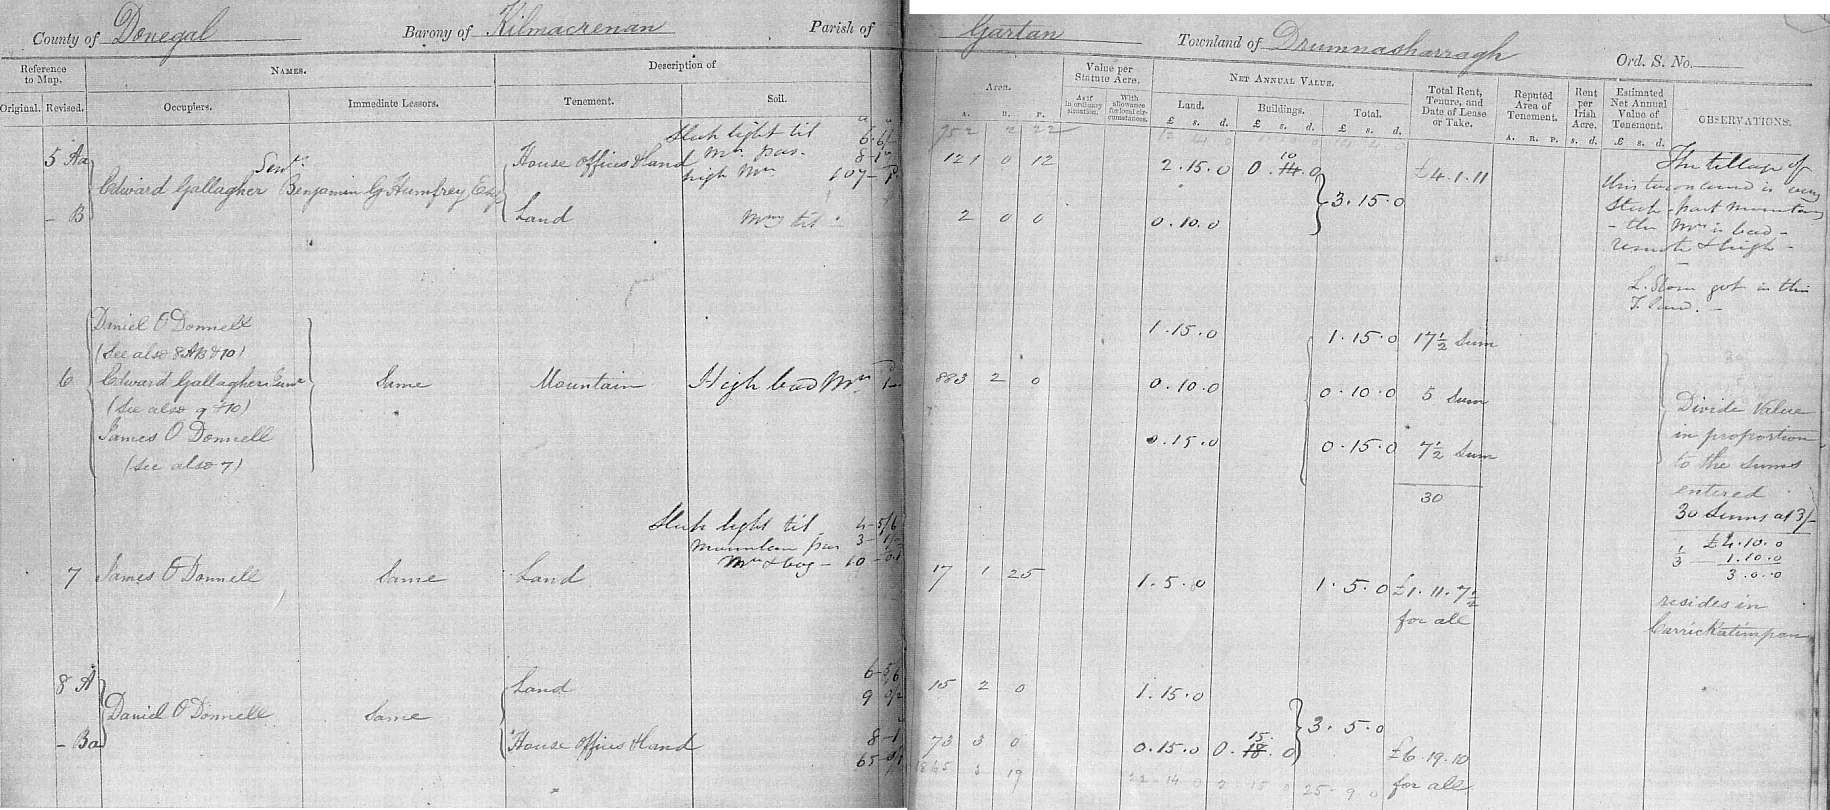 County of Donegal Barony of Kilmacrenan Parish of Gartan Townland of Drumnasharragh Ord. S. No.
Reference to Map. NAMES. Description of Area. Value per Statute Acre. NET ANNUAL VALUE. Total Rent, Tenure, and Date of Lease or Take. Reputed Area of Tenement. Rent per Irish Acre. Estimated Net Annual Value of Tenement. OBSERVATIONS.
Original. Revised. Occupiers. Immediate Lessors. Tenement. Soil. As if in ordinary situation. With allowance for local circumstances. Land. Buildings. Total.
A. R. P. £ s. d. £ s. d. £ s. d. A. R. P. s. d. £ s. d.
952 2 22
Steep light til 6
5 Aa House offices & land Mn pas. 8 121 0 12 2.15.0 0.14.0 10 £4.1.11 The tillage of
Edward Gallagher Senr. Benjamin G Humfrey Esq. high Mn 107 3.15.0 this concerned is very
- B Land Mny til 2 0 0 0.10.0 steep - part mountain
- the Mn is bad -
remote & high -
L. Stone got in this
T. land. -
Daniel O Donnell 1.15.0 1.15.0 17½ Sum
(See also 8AB & 10)
6 Edward Gallagher Junr Same Mountain High bad Mn 883 2 0 0.10.0 0.10.0 5 Sum
(See also 9 & 10) Divide Value
James O Donnell 0.15.0 0.15.0 7½ Sum in proportion
(See also 7) to the Sums
30 entered
Steep light til 4 - 5/6 30 Sums at 3/-
mountain pas 3 £4.10.0
Mn & bog - 10 1/3 1.10.0
3.0.0
7 James O Donnell Same Land 17 1 25 1.5.0 1.5.0 £1.11.7½ resides in
for all Carrickatimpan
6 - 5/6
8 A Land 9 15 2 0 1.15.0
Daniel O Donnell Same 3.5.0
- Ba House offices & land 8 73 3 0 0.15.0 0.18.0 15 £6.19.10
65 for all
1865 3 19 22-14 0 2 15 0 25.9 0